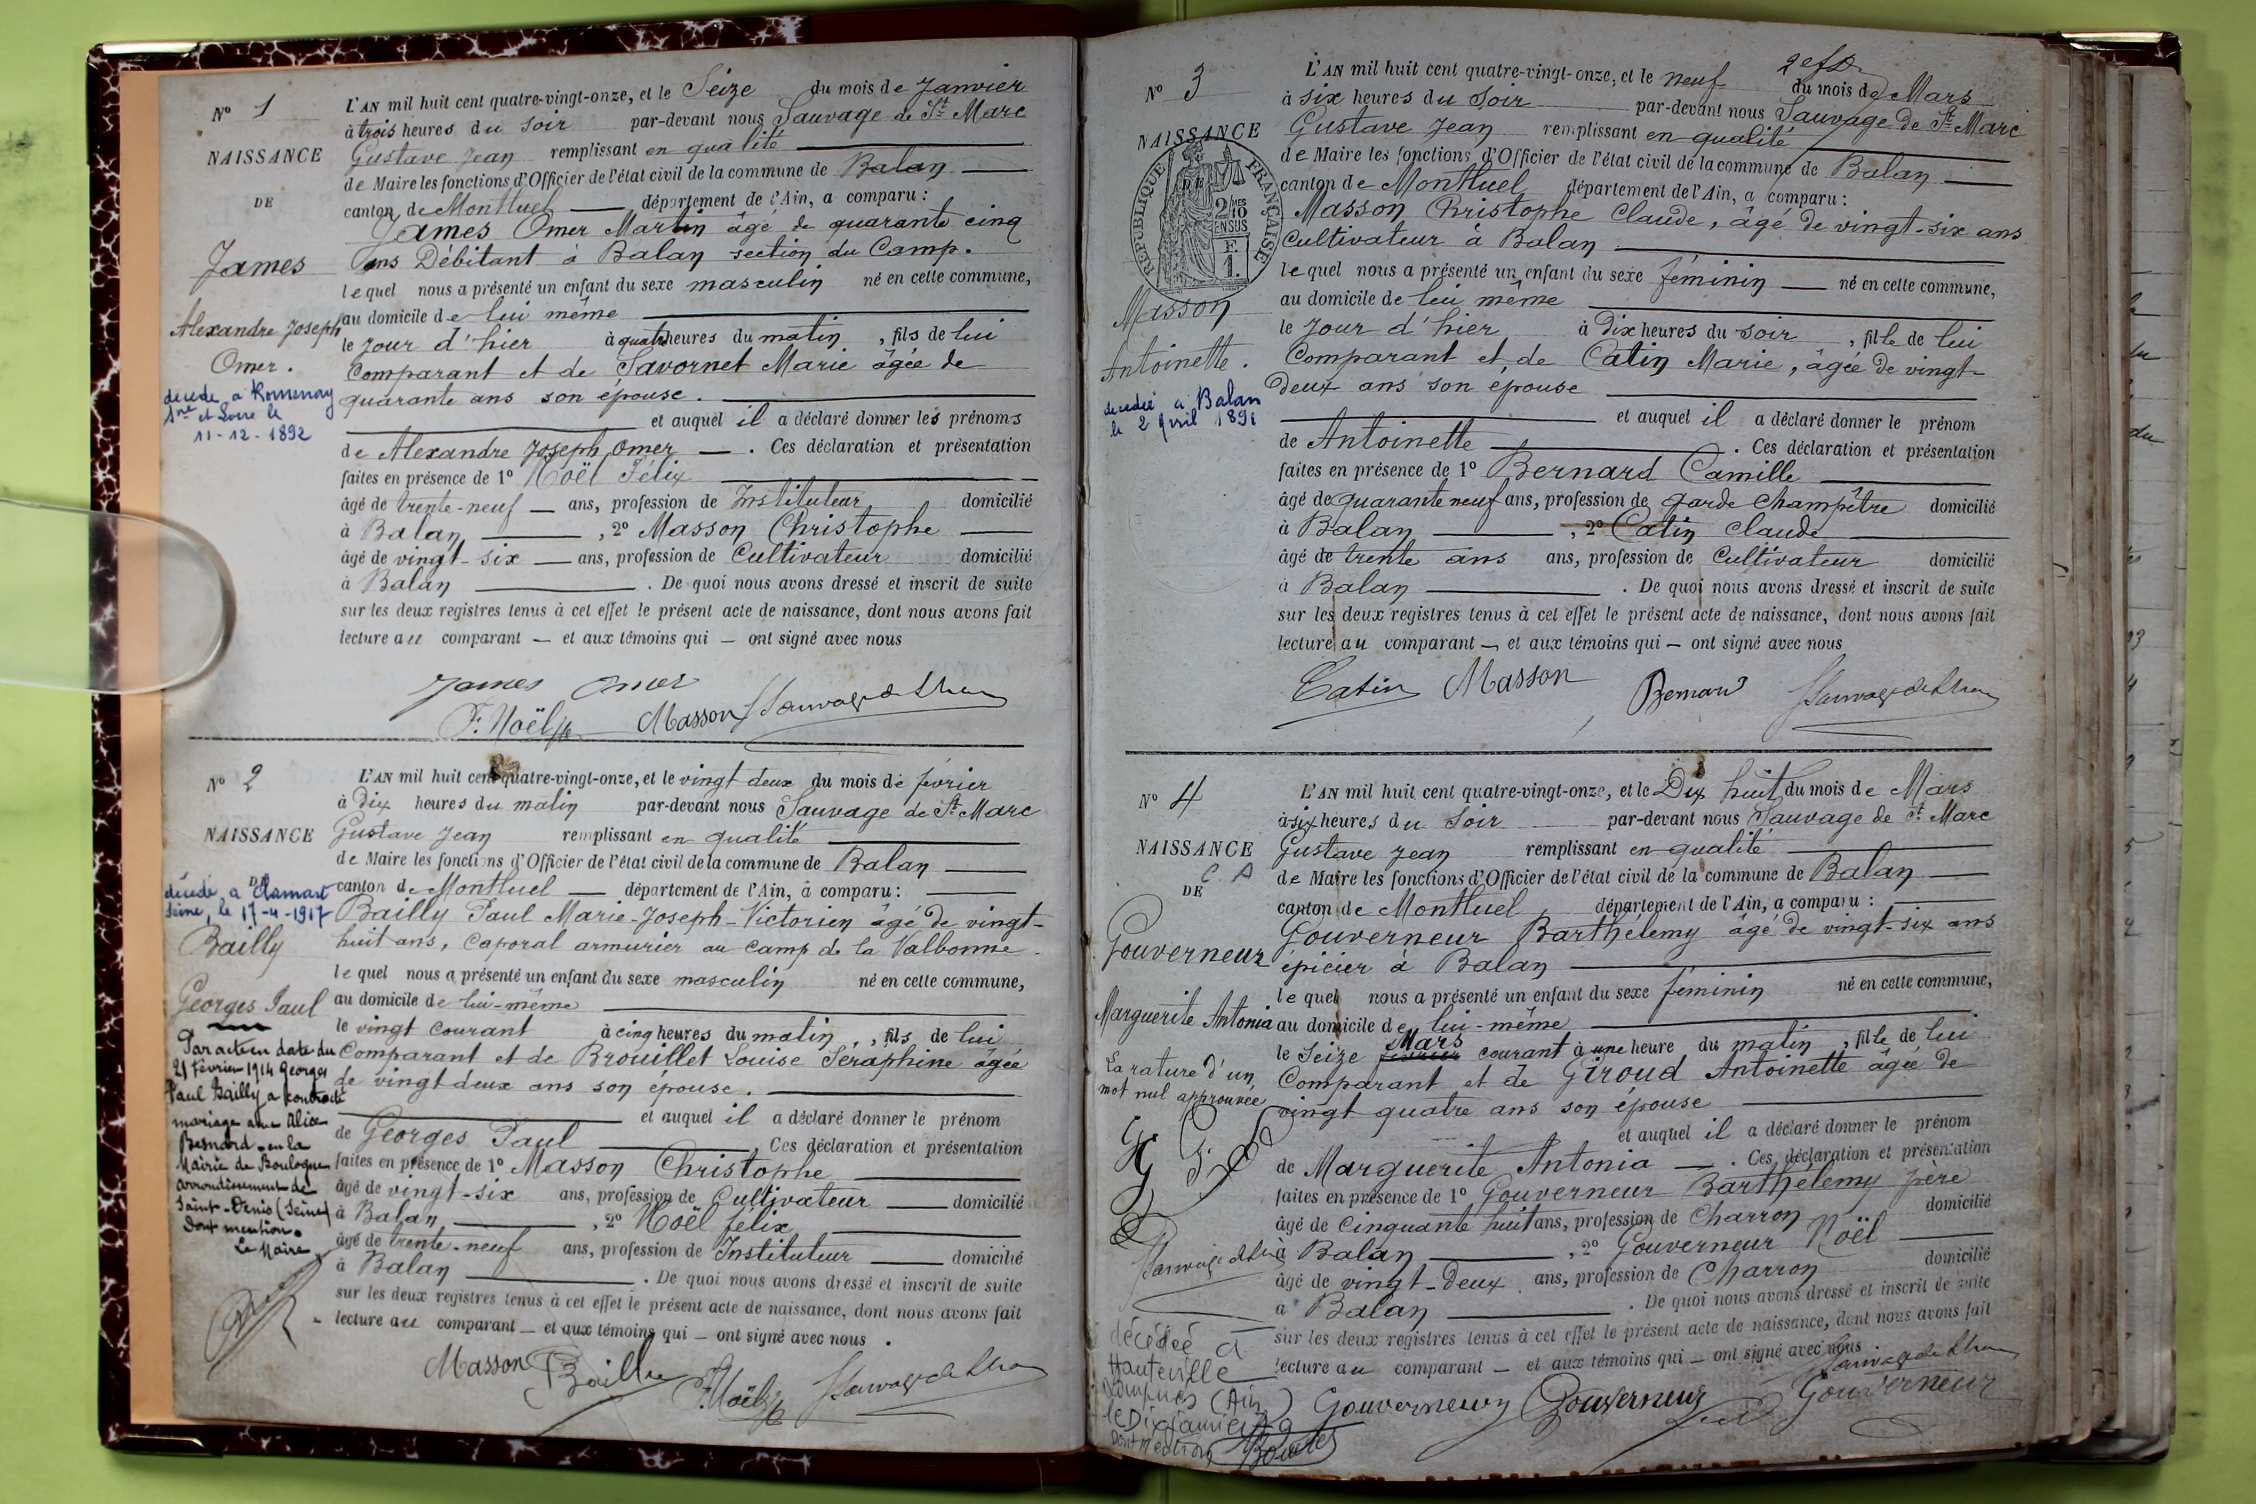 N° 1
NAISSANCE
DE
James
Alexandre Joseph
Omer.
décédé à Romenay
Sne et Loire le
11-12-1892
L'AN mil huit cent quatre-vingt-onze, et le Seize du mois de Janvier
à trois heures du soir par-devant nous Sauvage de St Marc
Gustave Jean remplissant en qualité
de Maire les fonctions d'Officier de l'état civil de la commune de Balan
canton de Montluel département de l'Ain, a comparu :
James Omer Martin âgé de quarante cinq
ans Débitant à Balan section du Camp.
lequel nous a présenté un enfant du sexe masculin né en cette commune,
au domicile de lui même
le jour d'hier à quatre heures du matin, fils de lui
Comparant et de Savornet Marie âgée de
quarante ans son épouse.
et auquel il a déclaré donner les prénoms
de Alexandre Joseph Omer. Ces déclaration et présentation
faites en présence de 1° Noël Félix
âgé de trente-neuf ans, profession de Instituteur domicilié
à Balan, 2° Masson Christophe
âgé de vingt-six ans, profession de Cultivateur domicilié
à Balan. De quoi nous avons dressé et inscrit de suite
sur les deux registres tenus à cet effet le présent acte de naissance, dont nous avons fait
lecture au comparant — et aux témoins qui — ont signé avec nous
James Omer
F. Noël Masson
N° 2
NAISSANCE
DE
décédé à Clamart
Seine, le 17-4-1917
Bailly
Georges Paul
Par acte en date du
21 février 1914 Georges
Paul Bailly a contracté
mariage avec Alice
Besnard en la
Mairie de Boulogne
arrondissement de
Saint-Denis (Seine)
Dont mention.
Le Maire
L'AN mil huit cent quatre-vingt-onze, et le vingt deux du mois de février
à Dix heures du matin par-devant nous Sauvage de St Marc
Gustave Jean remplissant en qualité
de Maire les fonctions d'Officier de l'état civil de la commune de Balan
canton de Montluel département de l'Ain, à comparu :
Bailly Paul Marie-Joseph-Victorien âgé de vingt-
huit ans, Caporal armurier au camp de la Valbonne.
lequel nous a présenté un enfant du sexe masculin né en cette commune,
au domicile de lui-même
le vingt courant à cinq heures du matin, fils de lui
Comparant et de Brouillet Louise Séraphine âgée
de vingt deux ans son épouse.
et auquel il a déclaré donner le prénom
de Georges Paul Ces déclaration et présentation
faites en présence de 1° Masson Christophe
âgé de vingt-six ans, profession de Cultivateur domicilié
à Balan, 2° Noël félix
âgé de trente-neuf ans, profession de Instituteur domicilié
à Balan. De quoi nous avons dressé et inscrit de suite
sur les deux registres tenus à cet effet le présent acte de naissance, dont nous avons fait
lecture au comparant — et aux témoins qui — ont signé avec nous.
Masson Bailly F. Noël
N° 3
NAISSANCE
DE
RÉPUBLIQUE FRANÇAISE
2 10MES
EN SUS
F.
1.
Masson
Antoinette.
décédée à Balan
le 2 Avril 1891
L'AN mil huit cent quatre-vingt-onze, et le neuf du mois de Mars
à six heures du soir par-devant nous Sauvage de St Marc
Gustave Jean remplissant en qualité
de Maire les fonctions d'Officier de l'état civil de la commune de Balan
canton de Montluel département de l'Ain, a comparu :
Masson Christophe Claude, âgé de vingt-six ans
Cultivateur à Balan
lequel nous a présenté un enfant du sexe féminin né en cette commune,
au domicile de lui même
le jour d'hier à Dix heures du soir, fille de lui
Comparant et de Catin Marie, âgée de vingt-
deux ans son épouse
et auquel il a déclaré donner le prénom
de Antoinette. Ces déclaration et présentation
faites en présence de 1° Bernard Camille
âgé de quarante neuf ans, profession de garde champêtre domicilié
à Balan, 2° Catin Claude
âgé de trente ans ans, profession de Cultivateur domicilié
à Balan. De quoi nous avons dressé et inscrit de suite
sur les deux registres tenus à cet effet le présent acte de naissance, dont nous avons fait
lecture au comparant — et aux témoins qui — ont signé avec nous
Catin Masson Bernard
N° 4
NAISSANCE
C. A
DE
Gouverneur
Marguerite Antonia
La rature d'un
mot nul approuvée
décédée à
Hauteville
Lompnes (Ain)
le Dix Janvier
Dont mention
L'AN mil huit cent quatre-vingt-onze, et le Dix huit du mois de Mars
à six heures du soir par-devant nous Sauvage de St Marc
Gustave Jean remplissant en qualité
de Maire les fonctions d'Officier de l'état civil de la commune de Balan
canton de Montluel département de l'Ain, a comparu :
Gouverneur Barthélemy âgé de vingt-six ans
épicier à Balan
lequel nous a présenté un enfant du sexe féminin né en cette commune,
au domicile de lui-même
Mars
le Seize février courant à une heure du matin, fille de lui
Comparant et de Giroud Antoinette âgée de
vingt quatre ans son épouse
et auquel il a déclaré donner le prénom
de Marguerite Antonia. Ces déclaration et présentation
faites en présence de 1° Gouverneur Barthélemy père
âgé de Cinquante huit ans, profession de Charron domicilié
à Balan, 2° Gouverneur Noël
âgé de vingt-deux ans, profession de Charron domicilié
à Balan. De quoi nous avons dressé et inscrit de suite
sur les deux registres tenus à cet effet le présent acte de naissance, dont nous avons fait
lecture au comparant — et aux témoins qui — ont signé avec nous
Gouverneur Gouverneur Gouverneur